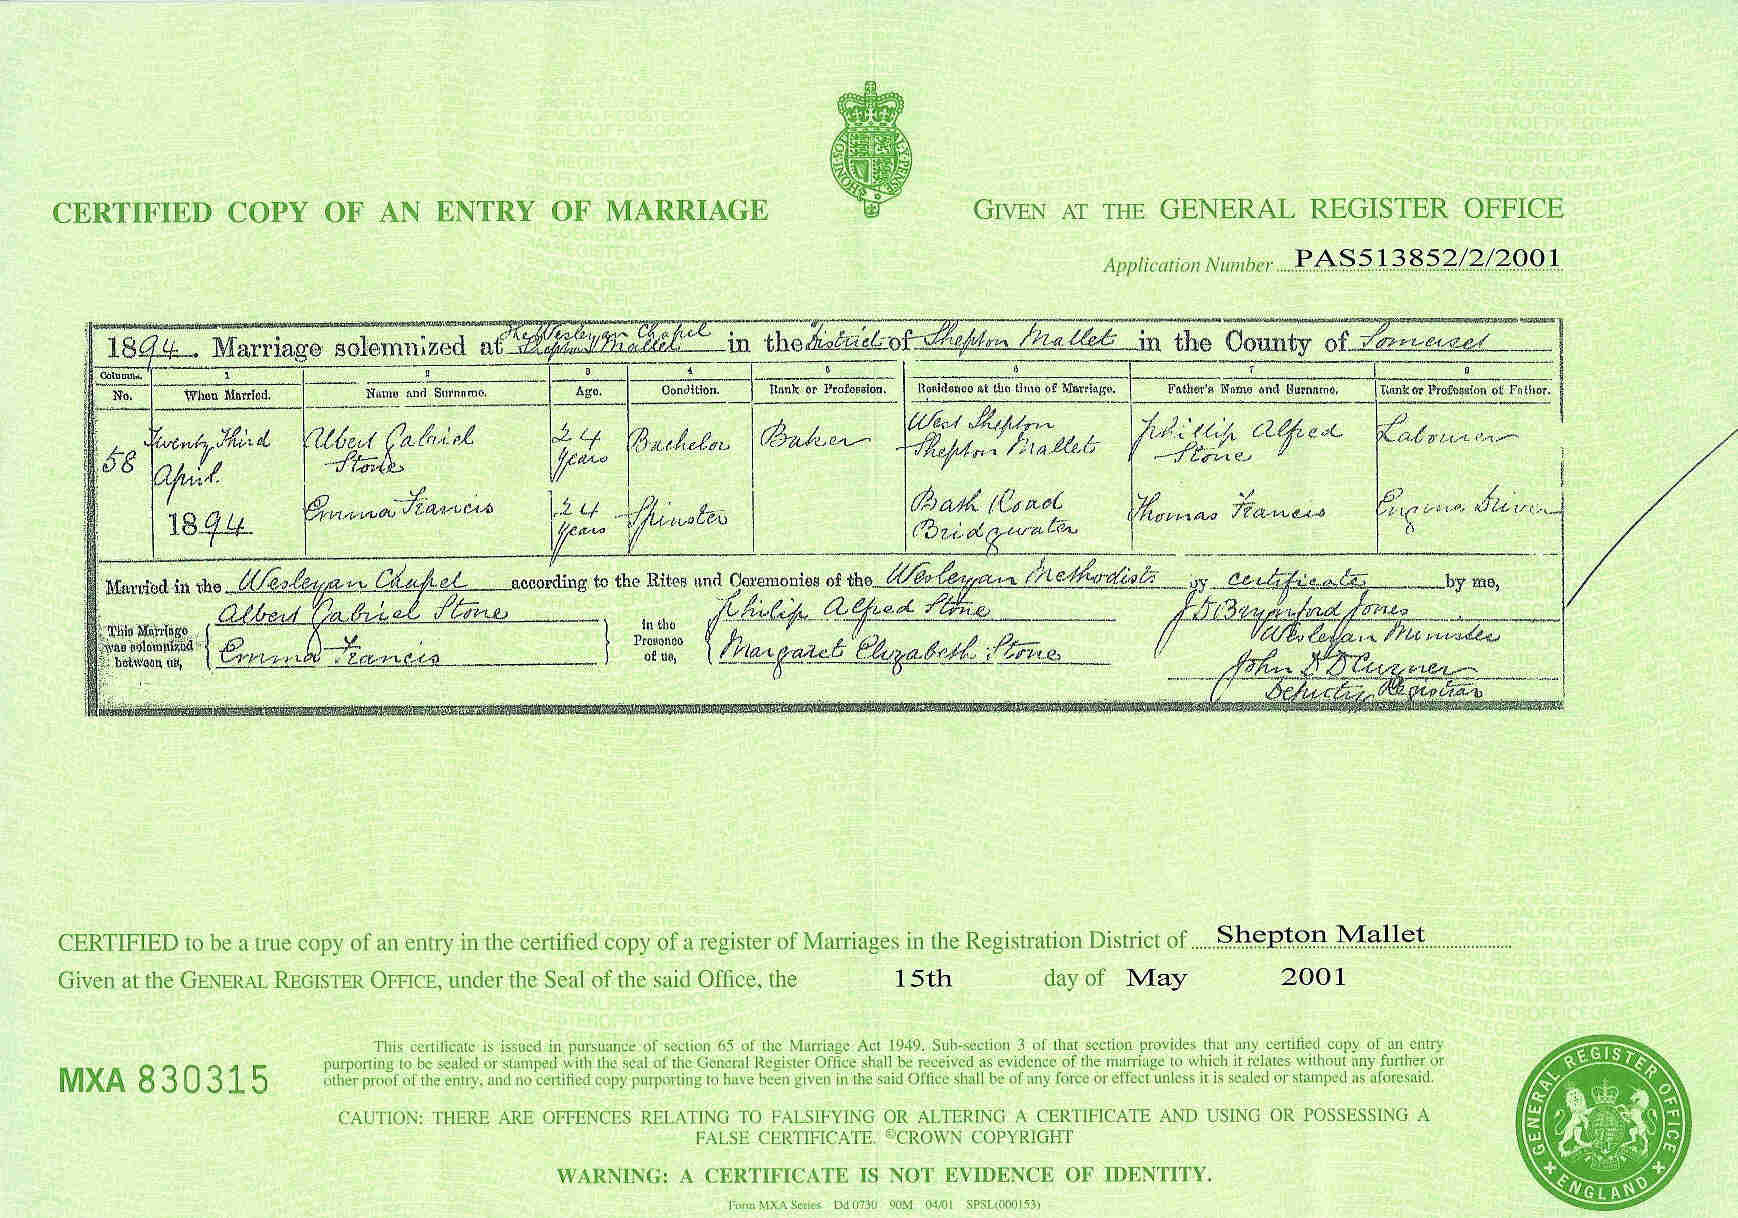 CERTIFIED COPY OF AN ENTRY OF MARRIAGE
GIVEN AT THE GENERAL REGISTER OFFICE
Application Number PAS513852/2/2001
1894. Marriage solemnized at The Wesleyan Chapel Shepton Mallet in the District of Shepton Mallet in the County of Somerset
Columns. 1 2 3 4 5 6 7 8
No. When Married. Name and Surname. Age. Condition. Rank or Profession. Residence at the time of Marriage. Father's Name and Surname. Rank or Profession of Father.
58 Twenty Third April 1894
Albert Gabriel Stone 24 years Bachelor Baker West Shepton Shepton Mallet Phillip Alfred Stone Labourer
Emma Francis 24 years Spinster Bath Road Bridgwater Thomas Francis Engine Driver
Married in the Wesleyan Chapel according to the Rites and Ceremonies of the Wesleyan Methodists by certificate by me,
This Marriage was solemnized between us,
Albert Gabriel Stone
Emma Francis
in the Presence of us,
Philip Alfred Stone
Margaret Elizabeth Stone
Jones
Wesleyan Minister
John D Curzner
Deputy Registrar
CERTIFIED to be a true copy of an entry in the certified copy of a register of Marriages in the Registration District of Shepton Mallet
Given at the GENERAL REGISTER OFFICE, under the Seal of the said Office, the 15th day of May 2001
This certificate is issued in pursuance of section 65 of the Marriage Act 1949. Sub-section 3 of that section provides that any certified copy of an entry
purporting to be sealed or stamped with the seal of the General Register Office shall be received as evidence of the marriage to which it relates without any further or
other proof of the entry, and no certified copy purporting to have been given in the said Office shall be of any force or effect unless it is sealed or stamped as aforesaid.
MXA 830315
CAUTION: THERE ARE OFFENCES RELATING TO FALSIFYING OR ALTERING A CERTIFICATE AND USING OR POSSESSING A
FALSE CERTIFICATE. ©CROWN COPYRIGHT
WARNING: A CERTIFICATE IS NOT EVIDENCE OF IDENTITY.
Form MXA Series Dd 0730 90M 04/01 SPSL(000153)
GENERAL REGISTER OFFICE
ENGLAND